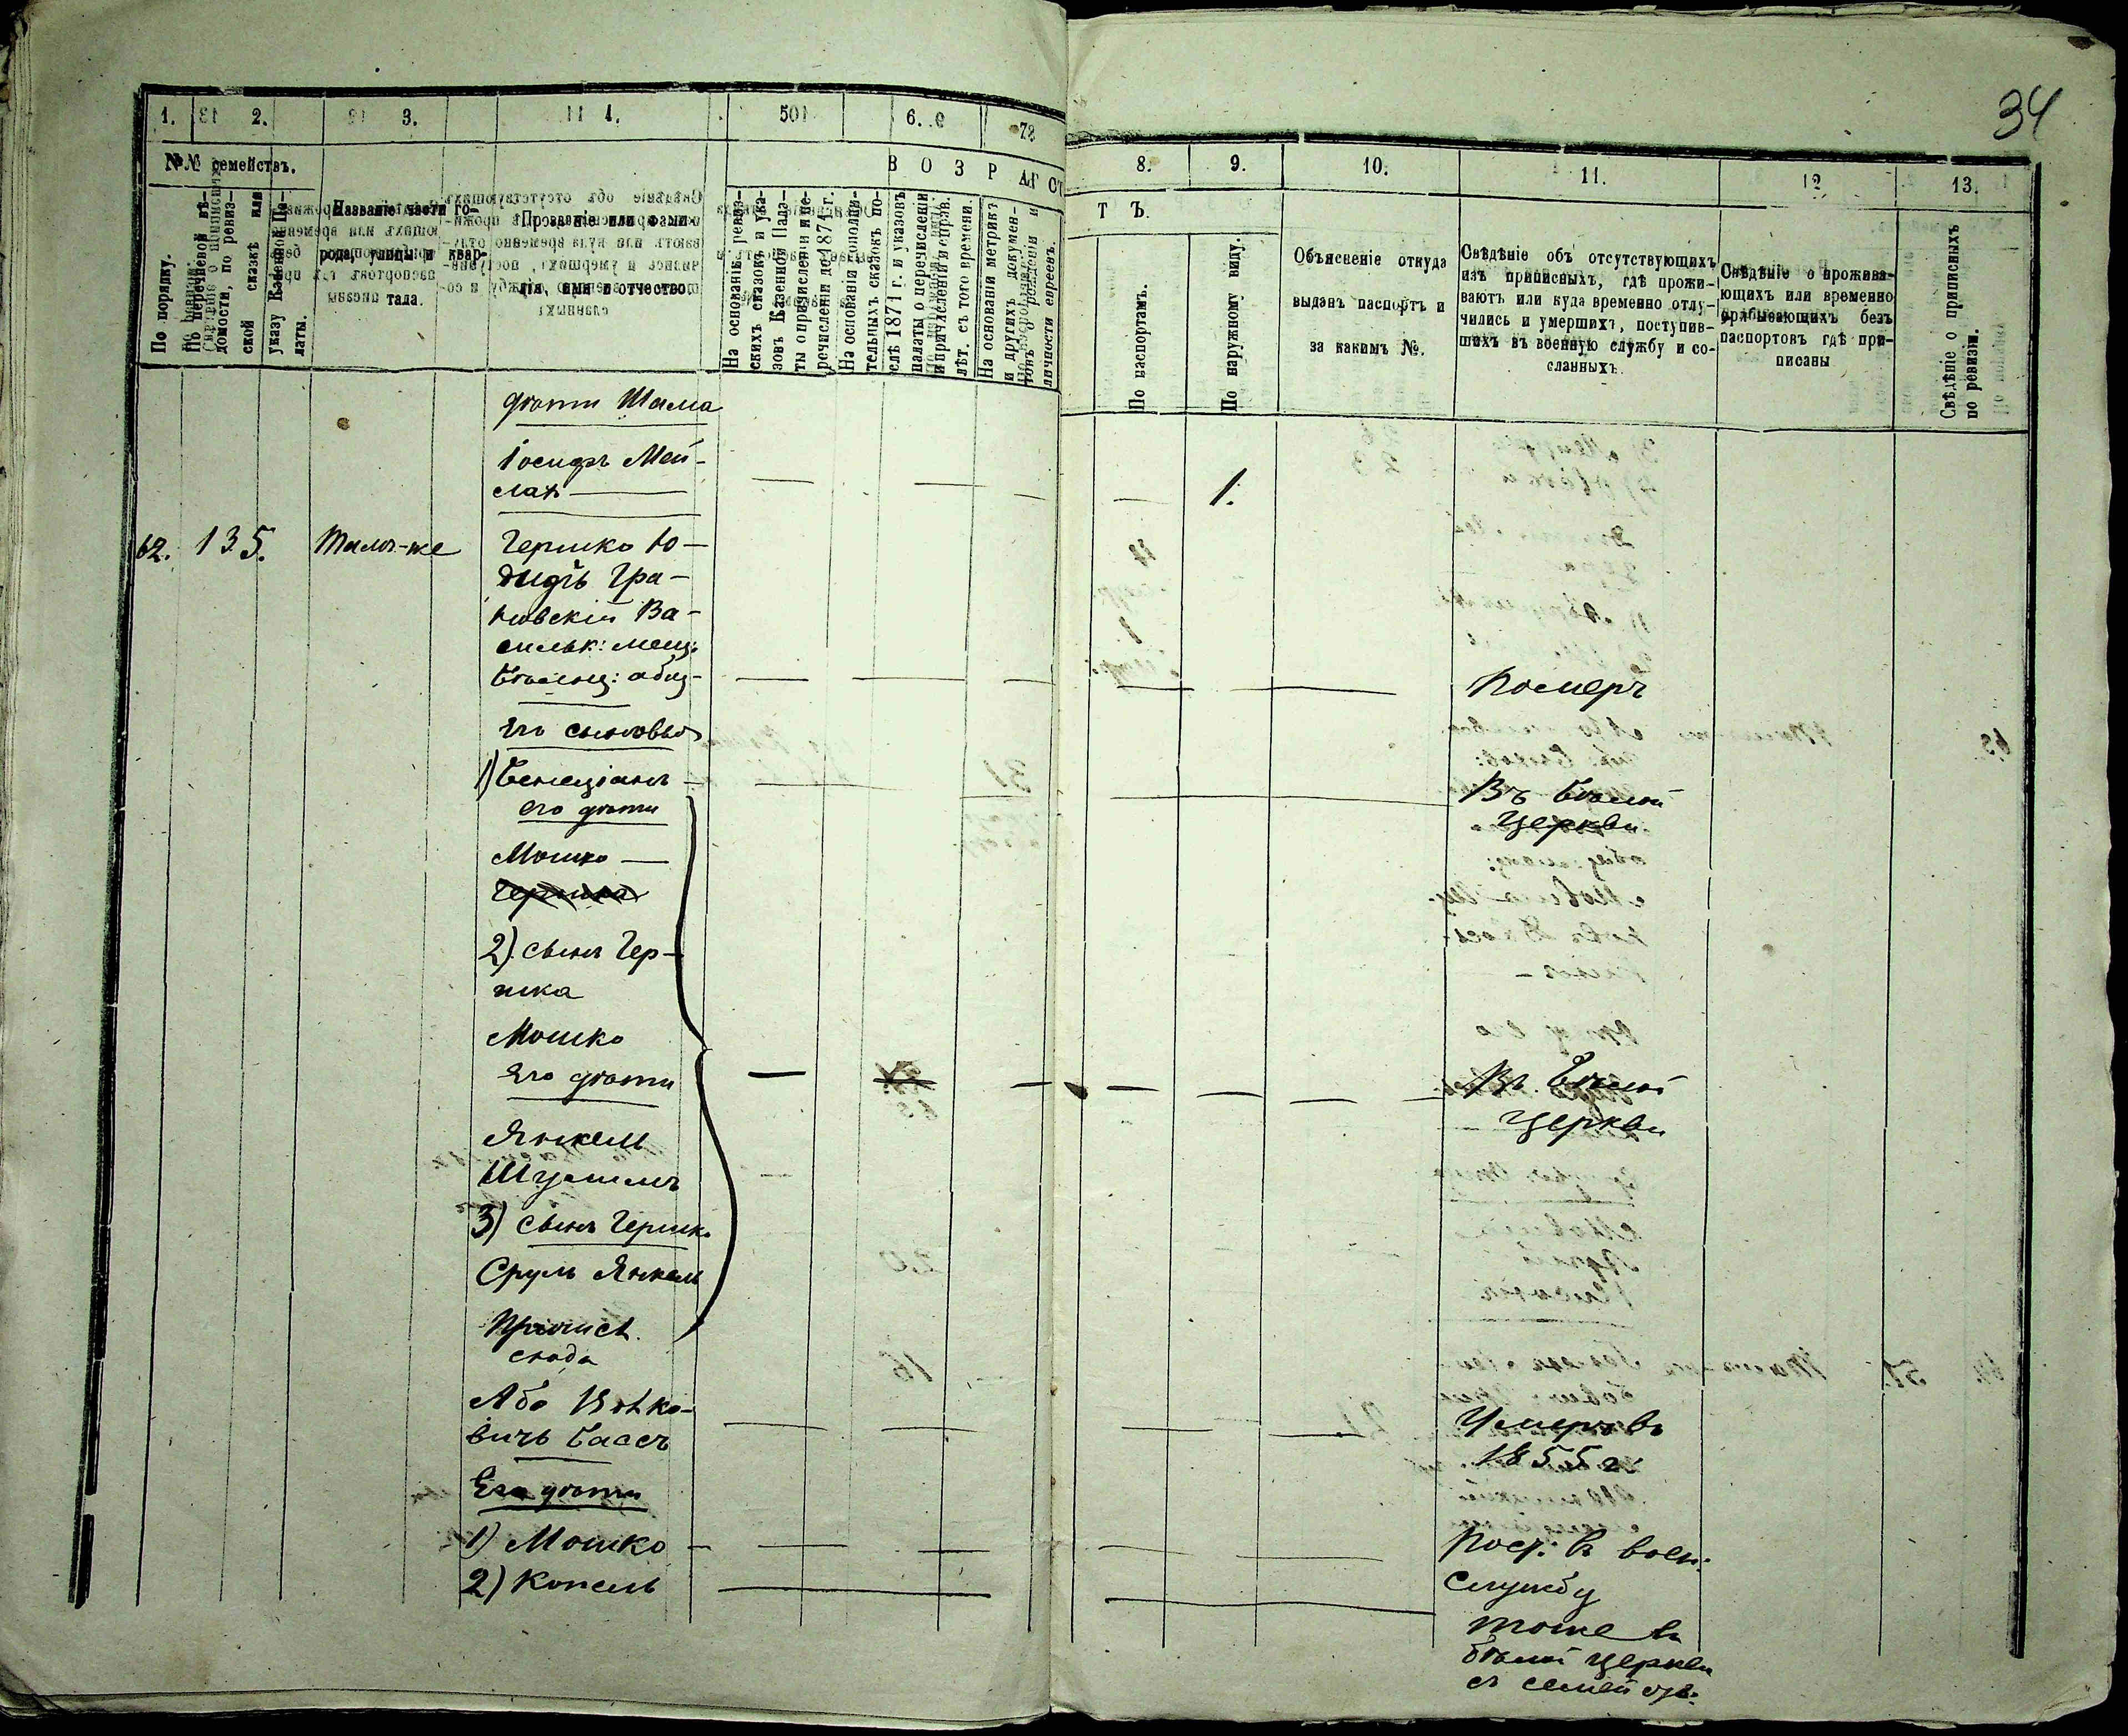 34
1. 2. 3. 4. 5. 6. 7.
№№ семействъ.
По порядку.
По перечневой вѣ-
домости, по ревиз-
ской сказкѣ или
указу Казенной Па-
латы.
Названіе части го-
рода, улицы и квар-
тала.
Прозваніе или фами-
лія, имя и отчество.
ВОЗРАСТ
На основаніи ревиз-
скихъ сказокъ и ука-
зовъ Казенной Пала-
ты о причисленіи и пе-
речисленіи до 1871 г.
На основаніи дополни-
тельныхъ сказокъ по-
слѣ 1871 г. и указовъ
палаты о перечисленіи
и причисленіи и справ.
лѣт. съ того времени.
На основаніи метрикъ
и другихъ докумен-
товъ о рожденіи и
личности евреевъ.
8. 9. 10. 11. 12 13.
Т Ъ.
По паспортамъ.
По наружному виду.
Объясненіе откуда
выданъ паспортъ и
за какимъ №.
Свѣдѣніе объ отсутствующихъ
изъ приписныхъ, гдѣ прожи-
ваютъ или куда временно отлу-
чились и умершихъ, поступив-
шихъ въ военную службу и со-
сланныхъ.
Свѣдѣніе о прожива-
ющихъ или временно
пребывающихъ безъ
паспортовъ гдѣ при-
писаны
Свѣдѣніе о приписныхъ
по ревизіи.
дѣти Шама
Іосифъ Мей-
лах — — — — — 1.
62. 135. Тамъ-же Гершко Ю-
Гра-
новскій Ва-
сильк: мещ:
Бѣлоц: общ- — — — — — Померъ
Его сыновья
1) Бенеціанъ — — — Въ Бѣлой
его дѣти Церкви
Мошко —
Гершка
2) сынъ Гер-
шка
Мошко
Его дѣти — — — — — Въ Бѣлой
Церкви
Янкель
Шулимъ
3) сынъ Гершк.
Сруль Янкель
Абa
вичъ Басъ — — — — Умеръ въ
1855 г.
Его дѣти
1) Мошко — — — — — Пост: въ воен:
службу
2) Копель — — тоже въ
бѣлой церкви
съ семей